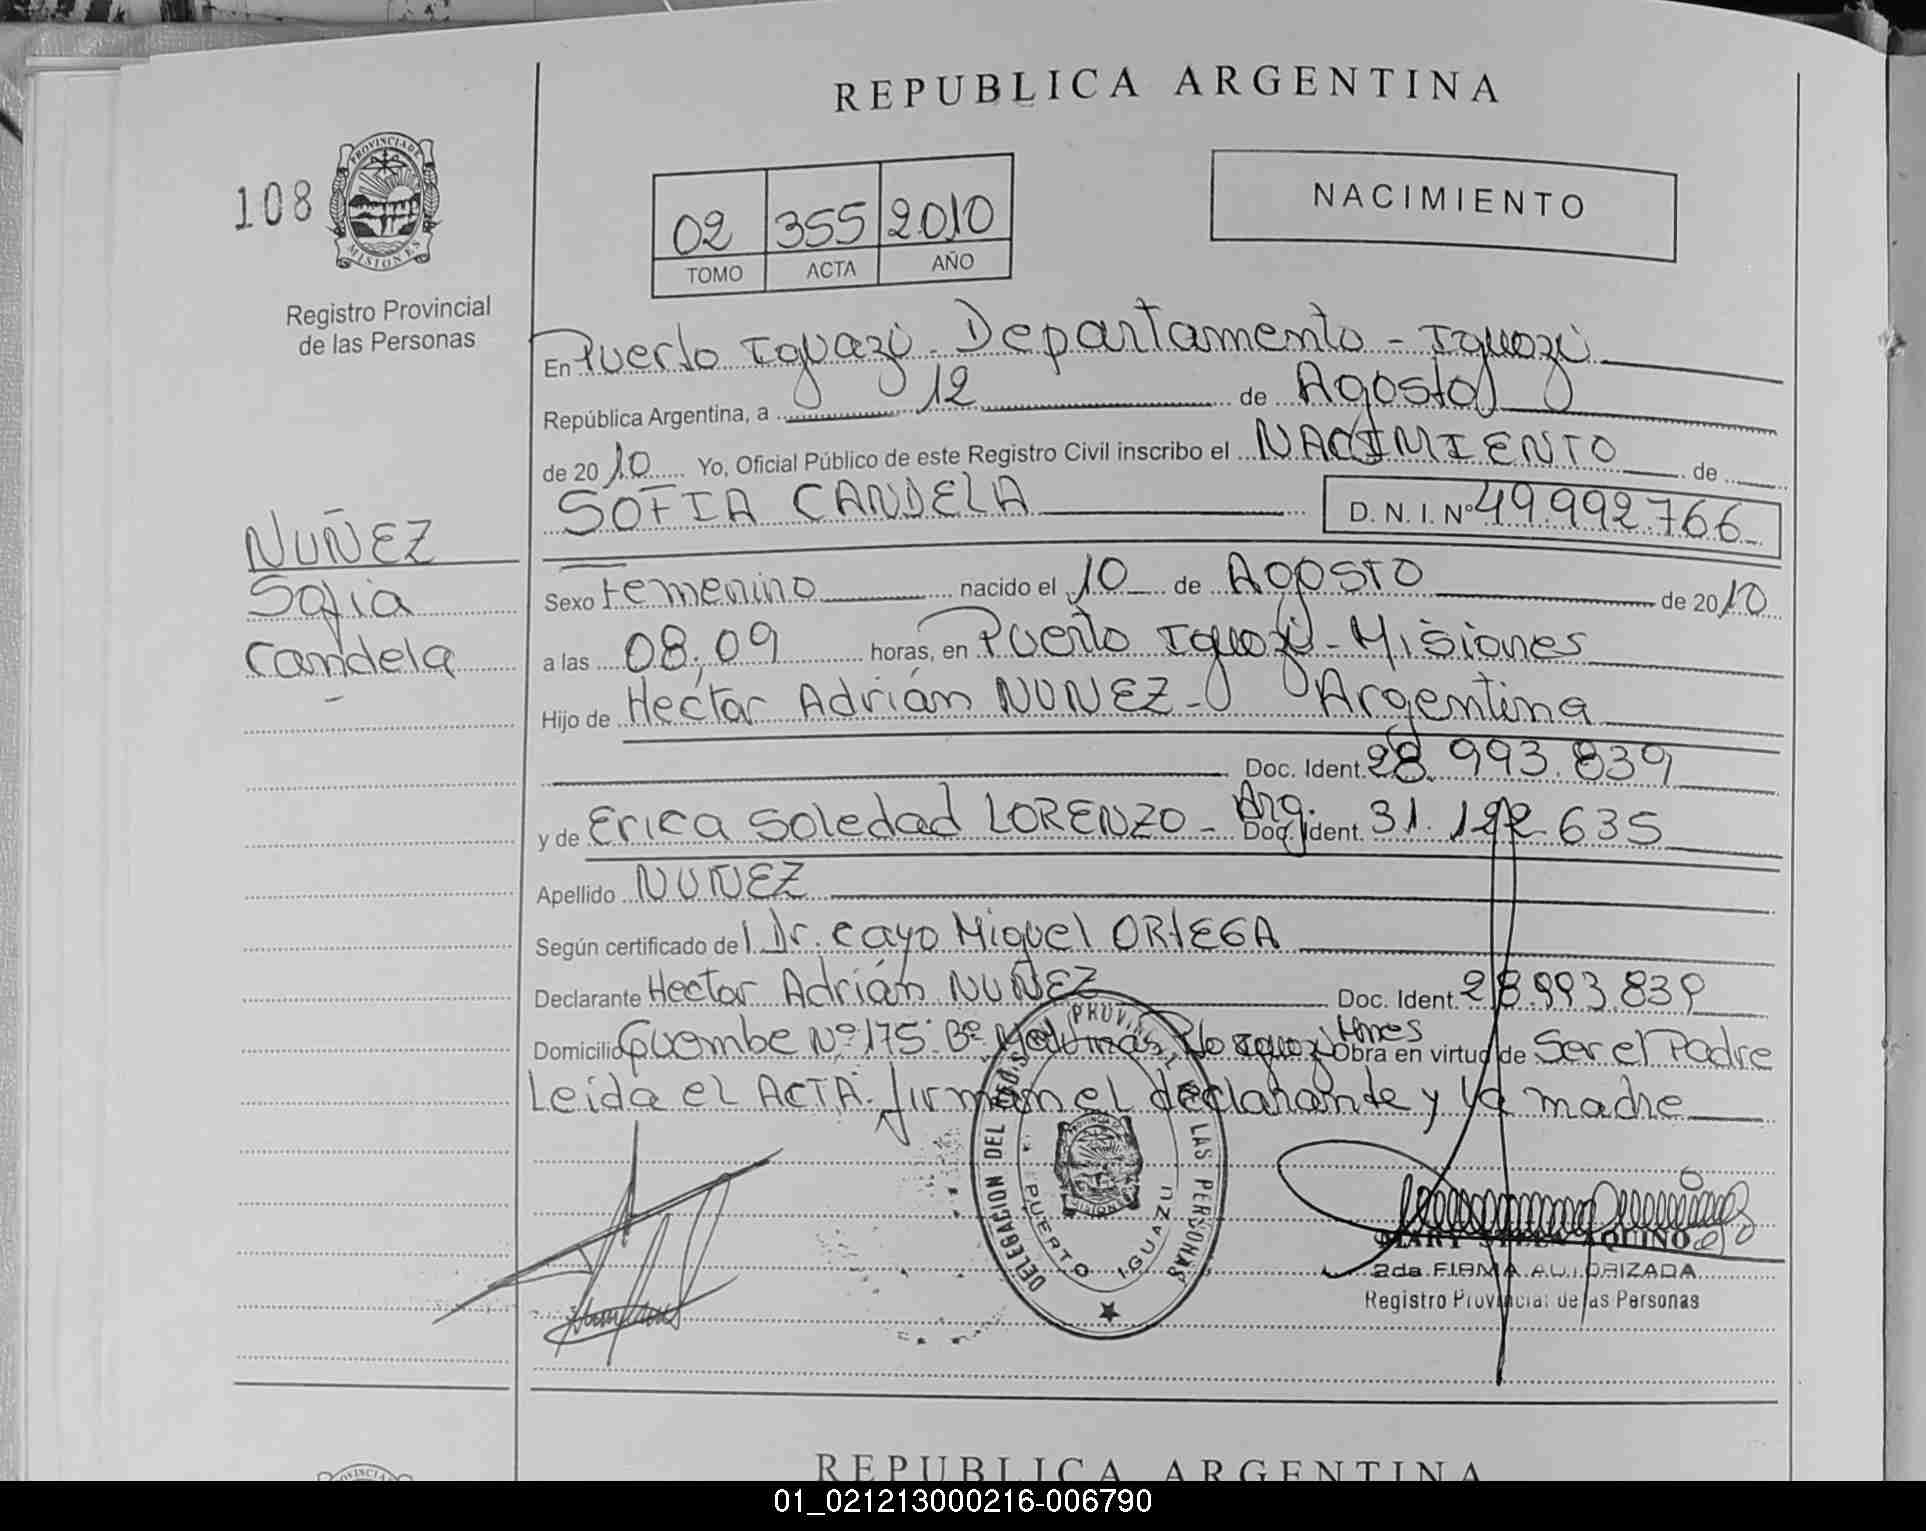 REPUBLICA ARGENTINA
108
PROVINCIA DE
MISIONES
Registro Provincial
de las Personas
02 355 2010
TOMO ACTA AÑO
NACIMIENTO
En Puerto Iguazú - Departamento - Iguazú
República Argentina, a 12 de Agosto
de 2010 Yo, Oficial Público de este Registro Civil inscribo el NACIMIENTO de
SOFIA CANDELA D. N. I. Nº 49.992.766
NUÑEZ
Sofia
Candela
Sexo Femenino nacido el 10 de AGOSTO de 2010
a las 08,09 horas, en Puerto Iguazú - Misiones
Hijo de Hector Adrián NUÑEZ - Argentina
Doc. Ident. 28.993.839
y de Erica Soledad LORENZO - Arg. Doc. Ident. 31.122.635
Apellido NUÑEZ
Según certificado del Dr. Cayo Miguel ORTEGA
Declarante Hector Adrián NUÑEZ Doc. Ident. 28.993.839
Domicilio Guembe Nº 175 Bº Malvinas Pto Iguazú Mnes Obra en virtud de Ser el Padre
Leida el ACTA. firman el declarante y la madre
DELEGACION DEL REGIS. PROVINCIAL DE LAS PERSONAS
PUERTO IGUAZU
MARY AQUINO
2da FIRMA AUTORIZADA
Registro Provincial de las Personas
PROVINCIA
REPUBLICA ARGENTINA
01_021213000216-006790